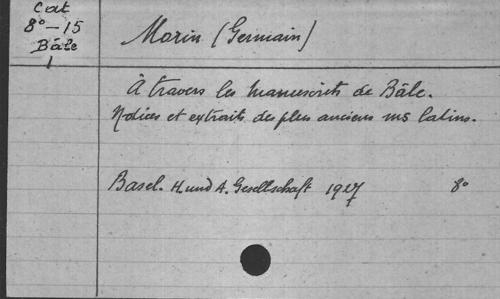 Cat
8°-15
Bâle
1
Morin (Germain)
À travers les manuscrits de Bâle.
Notices et extraits des plus anciens ms latins.
Basel. H. und A. Gesellschaft 1927 8°